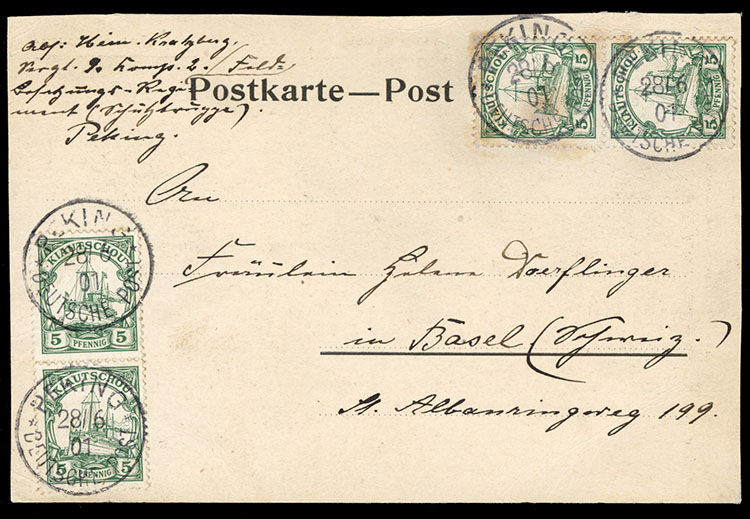 Abs: Heinr. Kratzberg,
Sergt. 9. Komp. 2. Feld=
Besatzungs-Regi
ment (Schutztruppe).
Peking.
Postkarte — Post
KIAUTSCHOU 5 PFENNIG
KIAUTSCHOU 5 PFENNIG
PEKING 28/6 01 DEUTSCHE
28/6 01 DEUTSCHE
An
Fräulein Helene Doerflinger
in Basel (Schweiz.)
St. Albanringweg 199.
PEKING 28/6 01 DEUTSCHE POST
KIAUTSCHOU
5 PFENNIG 5
PEKING 28/6 01 DEUTSCHE POST
KIAUTSCHOU
5 PFENNIG 5